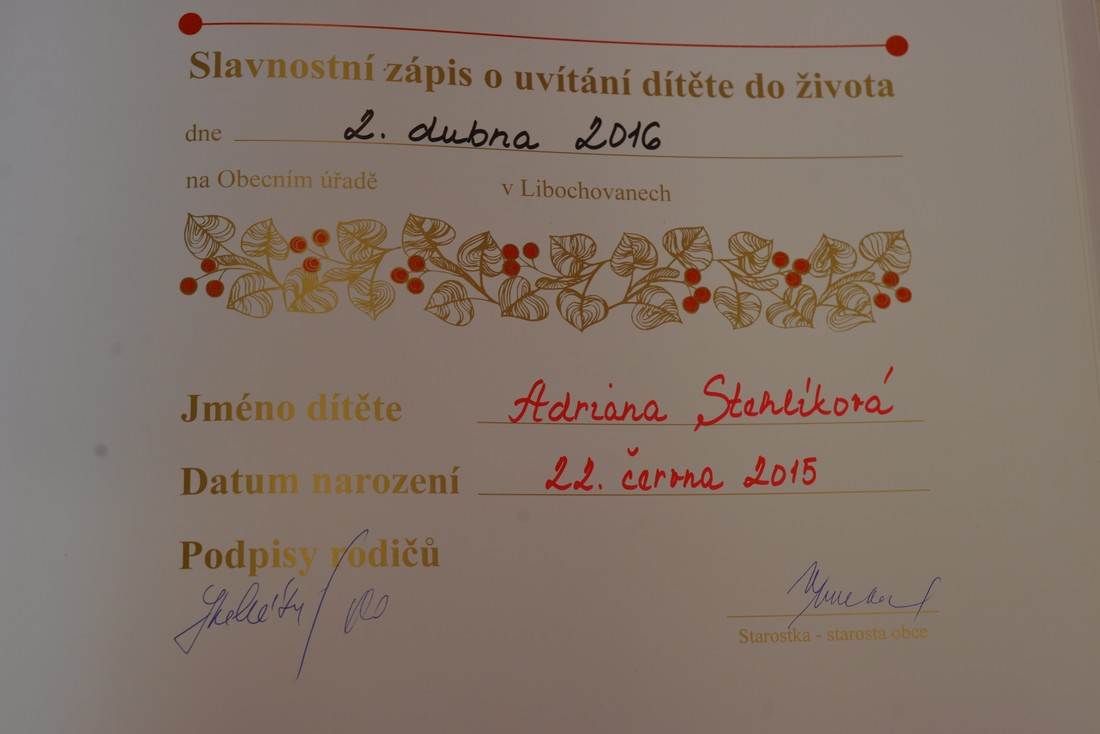 Slavnostní zápis o uvítání dítěte do života
dne 2. dubna 2016
na Obecním úřadě v Libochovanech
Jméno dítěte Adriana Stehlíková
Datum narození 22. června 2015
Podpisy rodičů
Starostka - starosta obce